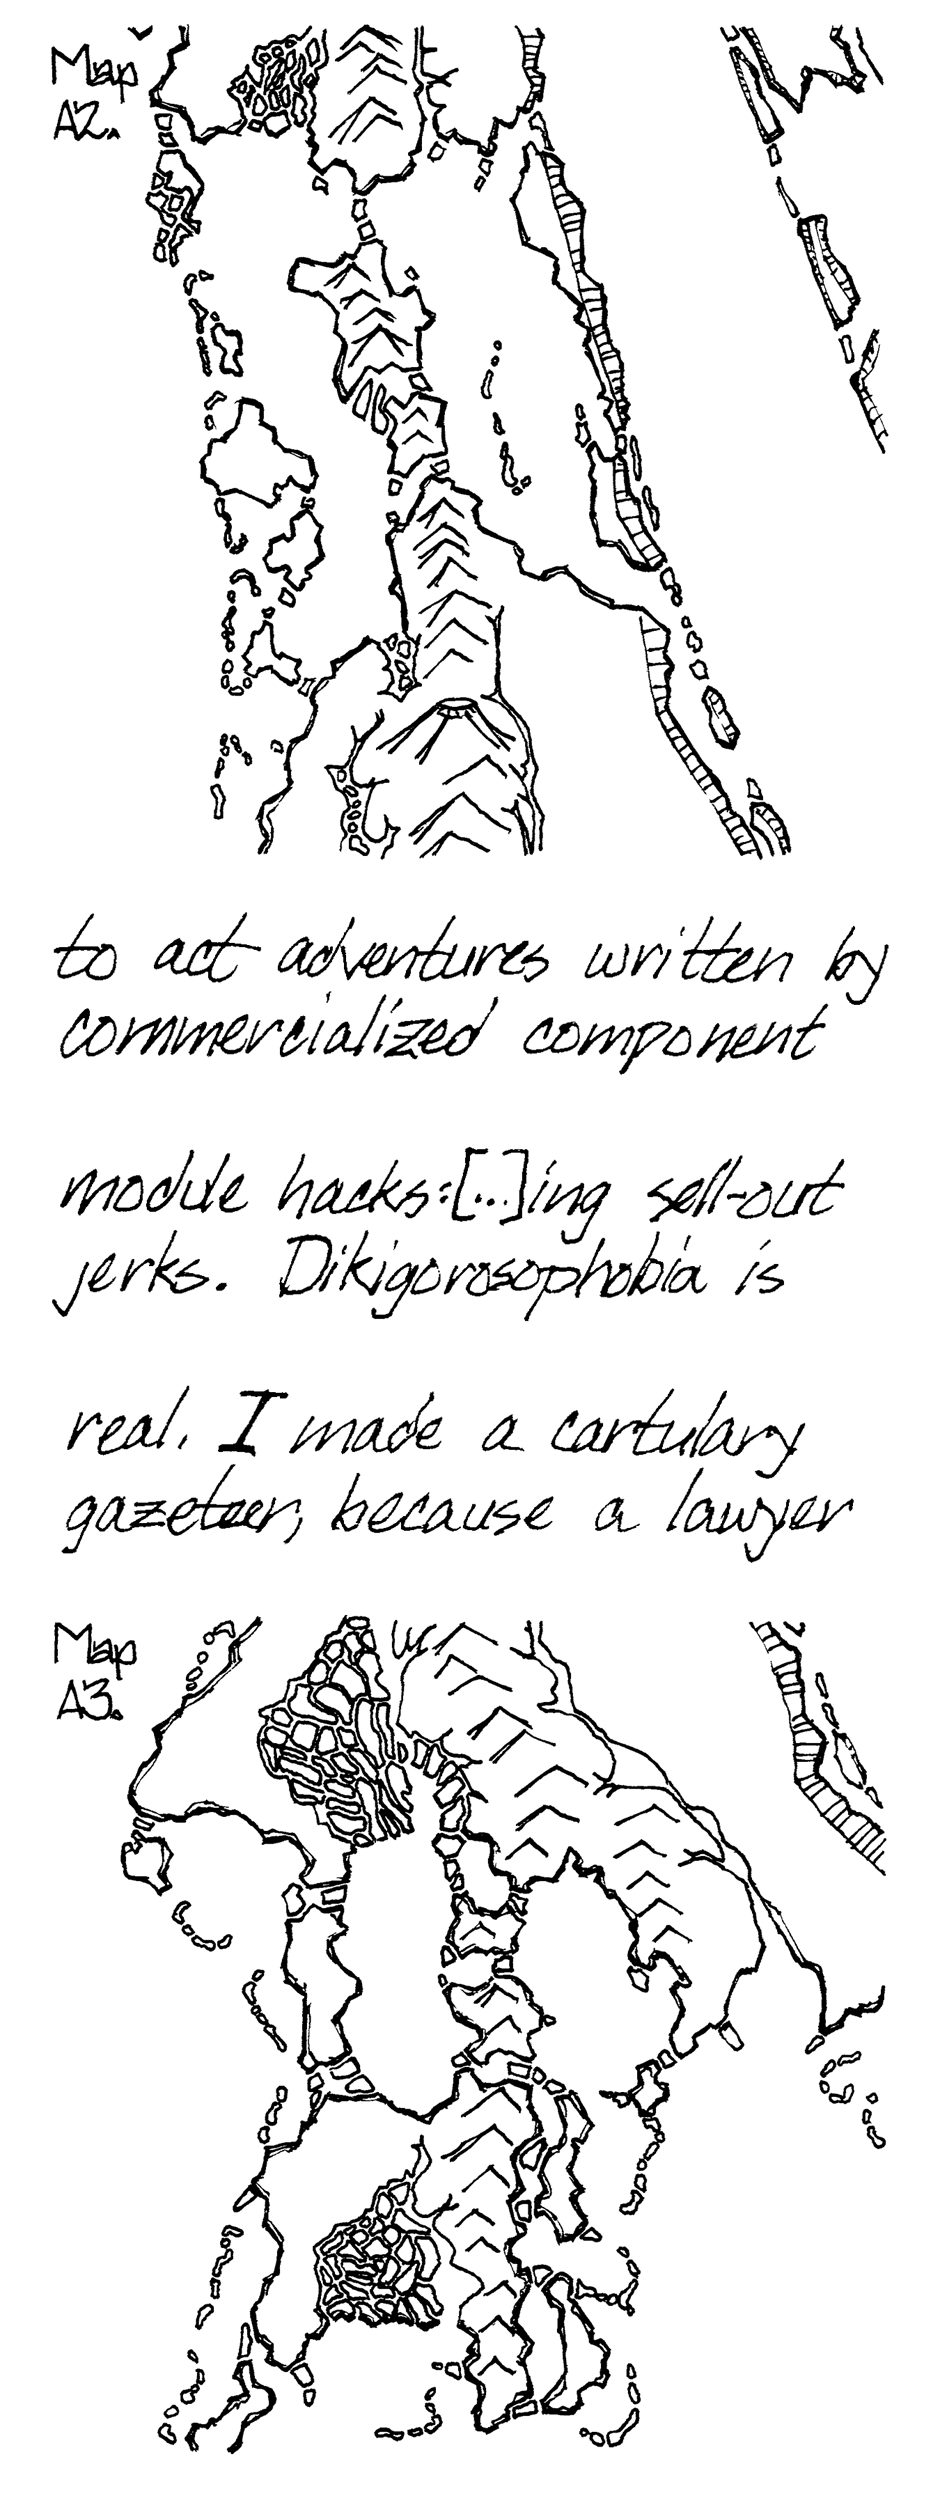 Map
A2.
to act adventures written by
commercialized component
module hacks:[...]ing sell-out
jerks. Dikigorosophobia is
real. I made a cartulary
gazeteer, because a lawyer
Map
A3.